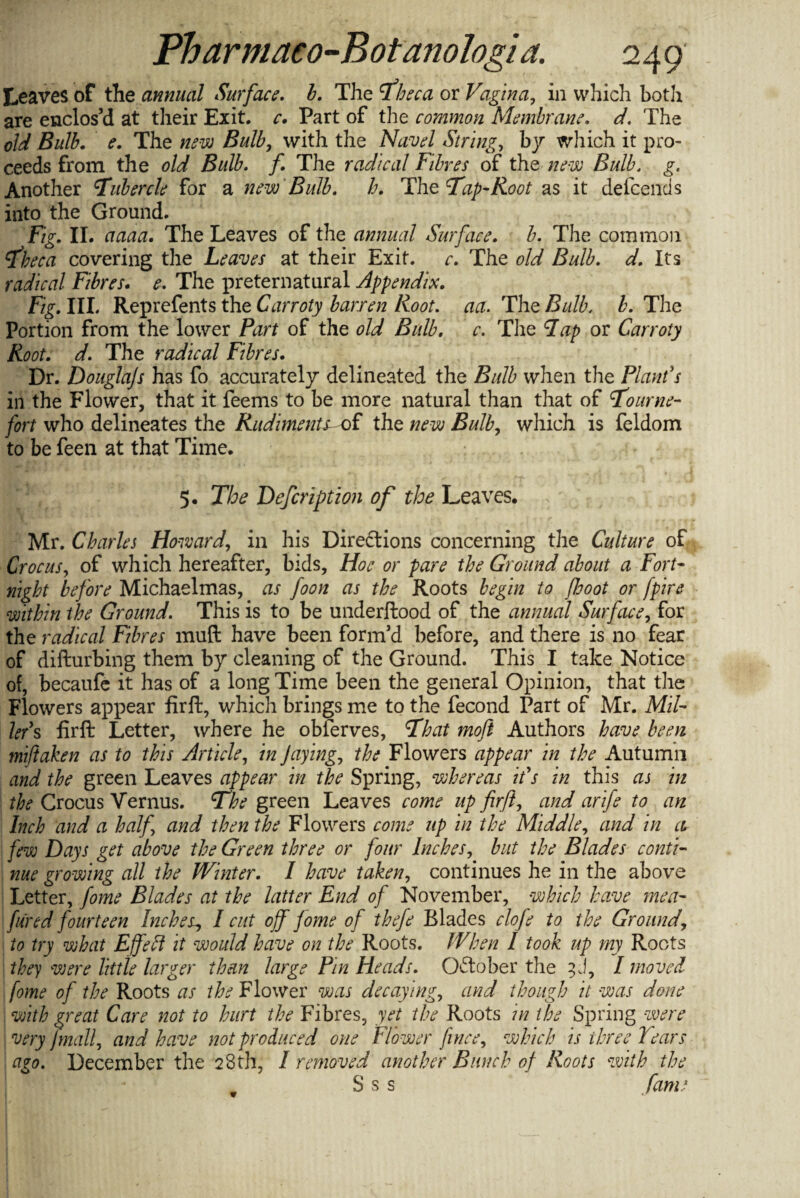 Pharmaco-Botanologia. 249
Leaves of the annual Surface. b. The Theca or Vagina, in which both
are enclos'd at their Exit. c. Part of the common Membrane. d. The
old Bulb. e. The new Bulb, with the Navel String, by which it pro-
ceeds from the old Bulb. f. The radical Fibres of the new Bulb. g.
Another Tubercle for a new Bulb. h. The Tap-Root as it deſcends
into the Ground.
Fig. II. aaaa. The Leaves of the annual Surface. b. The common
Theca covering the Leaves at their Exit. c. The old Bulb. d. Its
radical Fibres. e. The preternatural Appendix.
Fig. III. Repreſents the Carroty barren Root. aa. The Bulb. b. The
Portion from the lower Part of the old Bulb. c. The Tap or Carroty
Root. d. The radical Fibres.
Dr. Douglaſs has ſo accurately delineated the Bulb when the Plant's
in the Flower, that it ſeems to be more natural than that of Tourne-
fort who delineates the Rudiments of the new Bulb, which is ſeldom
to be ſeen at that Time.
5. The Deſcription of the Leaves.
Mr. Charles Howard, in his Directions concerning the Culture of
Crocus, of which hereafter, bids, Hoe or pare the Ground about a Fort-
night before Michaelmas, as ſoon as the Roots begin to ſhoot or ſpire
within the Ground. This is to be underſtood of the annual Surface, for
the radical Fibres muſt have been form'd before, and there is no fear
of diſturbing them by cleaning of the Ground. This I take Notice
of, becauſe it has of a long Time been the general Opinion, that the
Flowers appear firſt, which brings me to the ſecond Part of Mr. Mil-
ler's firſt Letter, where he obſerves, That moſt Authors have been
miſtaken as to this Article, in ſaying, the Flowers appear in the Autumn
and the green Leaves appear in the Spring, whereas it's in this as in
the Crocus Vernus. The green Leaves come up firſt, and ariſe to an
Inch and a half, and then the Flowers come up in the Middle, and in a
few Days get above the Green three or four Inches, but the Blades conti-
nue growing all the Winter. I have taken, continues he in the above
Letter, ſome Blades at the latter End of November, which have mea-
ſured fourteen Inches, I cut off ſome of theſe Blades cloſe to the Ground,
to try what Effect it would have on the Roots. When I took up my Roots
they were little larger than large Pin Heads. October the 3d, I moved
ſome of the Roots as the Flower was decaying, and though it was done
with great Care not to hurt the Fibres, yet the Roots in the Spring were
very ſmall, and have not produced one Flower ſince, which is three Years
ago. December the 28th, I removed another Bunch of Roots with the
S s s ſame